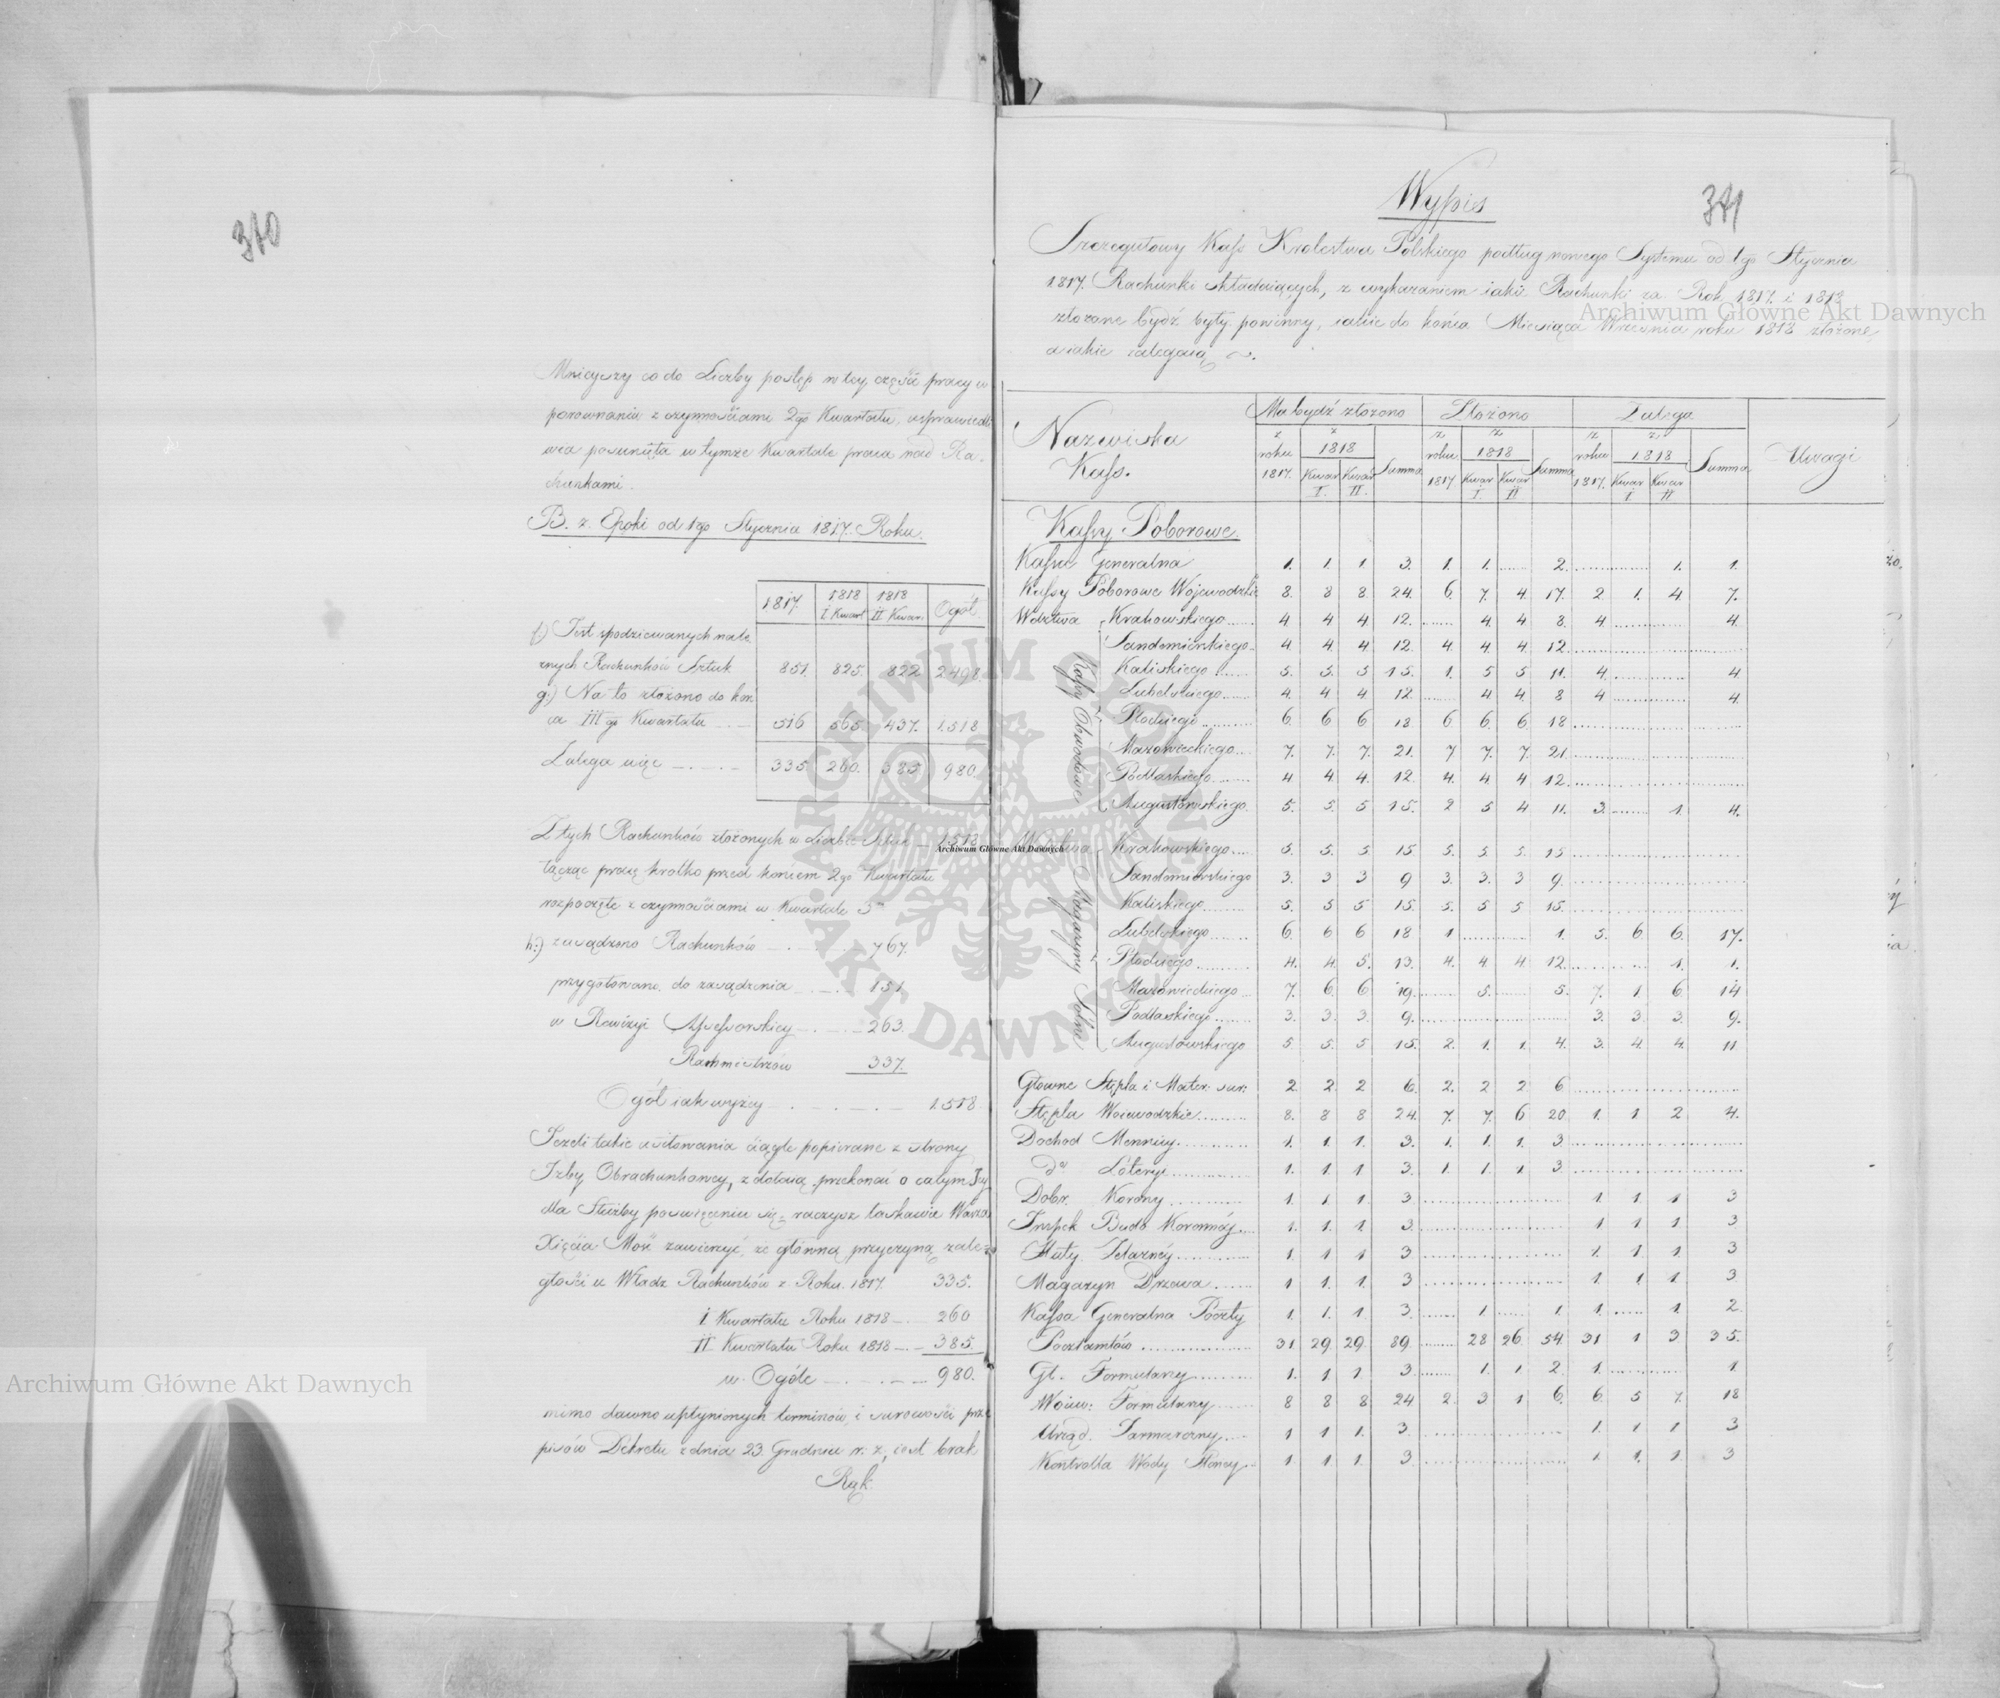 370
Mnieyszy co do Liczby postęp w tey części pracy w
porownaniu z czynnościami 2go Kwartału, usprawiedli
wia posunięta w tymże Kwartale praca nad Ra-
chunkami.
B. z Epoki od 1go Stycznia 1817. Roku.
1817. 1818 I Kwart 1818 II Kwar. Ogół
f.) Jest spodziewanych nale
żnych Rachunków Sztuk 851. 825. 822 2498
g.) Na to złożono do koń
ca III go Kwartału 516 565. 437. 1.518
Zalega więc 335. 260. 385 980.
Z tych Rachunków złożonych w Liczbie Sztuk 1518
łącząc pracę krótko przed końcem 2go Kwartału
rozpoczęte z czynnościami w Kwartale 3m
h.) zasądzono Rachunków 767.
przygotowano do zasądzenia 151.
w Rewizyi Assessorskiey 263.
Rachmistrzów 337.
Ogół iak wyżey 1.518.
Jeżeli takie usiłowania ciągle popierane z strony
Izby Obrachunkowey, zdołaią przekonać o całym Jey
dla Służby poświęceniu się, raczysz łaskawie Wasza
Xięcia Mość zawierzyć, że główną przyczyną zale-
głości u Władz Rachunków z Roku 1817. 335.
I Kwartału Roku 1818 260
II Kwartału Roku 1818 385.
w Ogóle 980.
mimo dawno upłynionych terminów i surowości prze
pisów Dekretu z dnia 23. Grudnia r. z., iest brak
Rąk
371
Wypis
Szczegułowy Kass Krolestwa Polskiego podług nowego Systemu od 1go Stycznia
1817. Rachunki składaiących, z wykazaniem iakie Rachunki za Rok 1817. i 1818
złożone bydź były powinny, iakie do końca Miesiąca Września roku 1818 złożone,
a iakie zalegaią.
Nazwiska Kass. Ma bydź złożono Złożono Zalega Uwagi
z roku 1817. z 1818 Kwar I. Kwar II. Summa z roku 1817 z 1818 Kwar I. Kwar II Summa z roku 1817. z 1818 Kwar I Kwar II Summa
Kassy Poborowe.
Kassa Generalna 1. 1. 1 3. 1. 1. 2. 1. 1.
Kassy Poborowe Wojewodzkie 8. 8 8. 24. 6. 7. 4 17. 2 1. 4. 7.
Wdztwa Kassy Obwodowe
Krakowskiego 4 4 4 12. 4. 4 8. 4. 4.
Sandomirskiego 4. 4. 4. 12. 4. 4 4. 12.
Kaliskiego 5. 5. 5 15. 1. 5 5 11. 4. 4
Lubelskiego 4. 4 4. 12. 4 4 8 4 4.
Płockiego 6. 6 6 18 6 6. 6. 18
Mazowieckiego 7. 7. 7. 21. 7 7. 7. 21.
Podlaskiego 4 4. 4. 12. 4. 4 4 12.
Augustowskiego 5. 5. 5 15. 2 5 4 11. 3. 1. 4.
Wdztwa Magazyny Solne
Krakowskiego 5. 5. 5. 15. 5. 5. 5. 15
Sandomirskiego 3. 3 3 9 3. 3. 3 9.
Kaliskiego 5. 5 5 15. 5. 5 5 15.
Lubelskiego 6. 6 6 18 1 1. 5. 6 6. 17.
Płockiego 4. 4. 5. 13. 4. 4 4 12. 1. 1.
Mazowieckiego 7. 6. 6 19. 5. 5. 7. 1 6 14
Podlaskiego 3. 3. 3. 9. 3. 3. 3. 9.
Augustowskiego 5 5. 5 15. 2. 1. 1. 4. 3. 4. 4. 11
Główne Stępla i Mater: sur: 2. 2 2 6. 2. 2 2 6
Stępla Woiewodzkie 8. 8 8 24. 7. 7. 6 20 1. 1 2 4.
Dochod Mennicy 1. 1. 1. 3. 1. 1. 1. 3
do Loteryi 1. 1 1 3. 1. 1. 1 3
Dobr. Korony 1. 1 1. 3 1. 1 1 3
Inspek Budo Koronnéy 1. 1. 1. 3. 1 1 1 3
Huty Żelaznéy 1. 1 1 3 1. 1 1 3
Magazyn Drzewa 1 1. 1. 3 1. 1. 1 3
Kassa Generalna Poczty 1. 1. 1 3. 1. 1 1. 1 2
Pocztamtów 31. 29 29. 89. 28 26. 54. 31 1 3 35.
Gł. Formularzy 1. 1 1. 3. 1. 1 2. 1. 1
Woiew: Formularzy 8 8 8 24 2. 3 1 6. 6 5 7. 18
Urząd. Jarmarczny 1 1 1. 3. 1. 1 1 3
Kontrolla Wody Słoney 1 1 1. 3 1 1. 1. 3
Archiwum Główne Akt Dawnych
Archiwum Główne Akt Dawnych
Archiwum Główne Akt Dawnych
ARCHIWUM GŁÓWNE AKT DAWNYCH